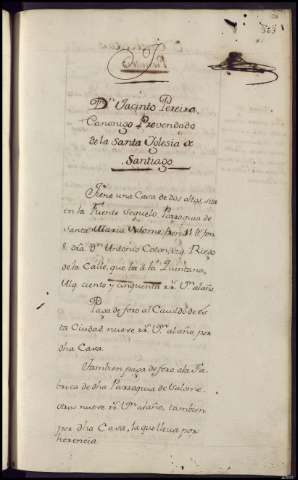 563
Dn. Jacinto Pereira,
Canonigo Prevendado
de la Santa Iglesia de
Santiago
Tiene una Casa de dos altos, sita
en la Fuente Sequelo, Parroquia de
Santa Maria Salome, por M. E. con
de Dn. Antonio
de la Calle, que la de la Quintana,
ciento y cinquenta rs. Vn. al año
Paga de foro al Cavildo de es
ta Ciudad nueve rs. Vn. al año por
dha Casa.
Tambien paga de foro a la Fa
brica de dha Parroquia de Salome
otros nueve rs. Vn. al año, tambien
por dha Casa, la que lleva por
herencia